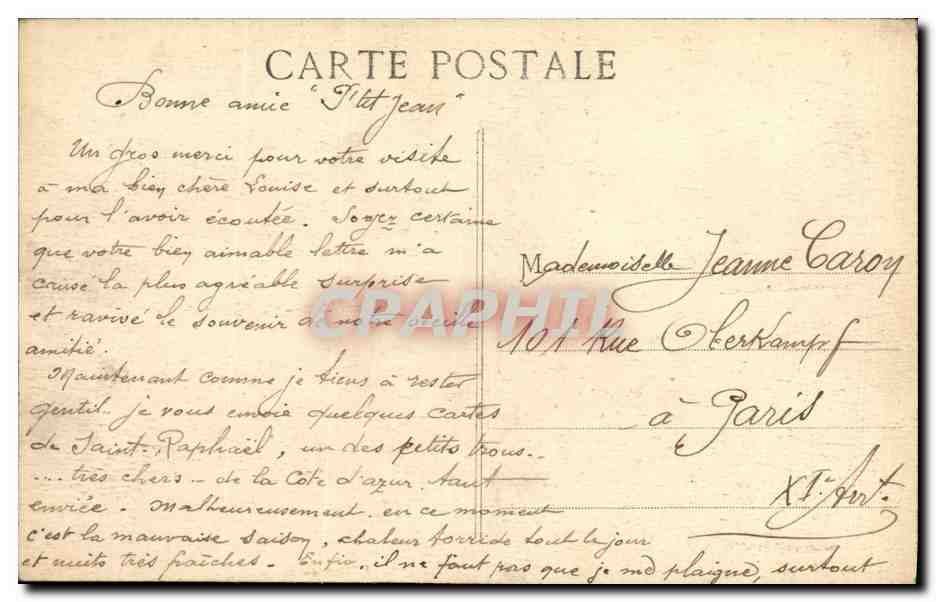 CARTE POSTALE
Bonne amie "P'tit Jean"
Un gros merci pour votre visite
à ma bien chère Louise et surtout
pour l'avoir écoutée. Soyez certaine
que votre bien aimable lettre m'a
causé la plus agréable surprise
et ravivé le souvenir de notre vieille
amitié.
Maintenant comme je tiens à rester
gentil.. je vous envoie quelques cartes
de Saint-Raphaël, un des petits trous..
.... très chers - de la Côte d'azur tant
enviée - Malheureusement en ce moment
c'est la mauvaise saison, chaleur torride tout le jour
et nuits très fraîches - Enfin, il ne faut pas que je me plaigne, surtout
Mademoiselle Jeanne Caron
101 Rue Oberkampf
à Paris
XIe Arrt.
CPAPHIL